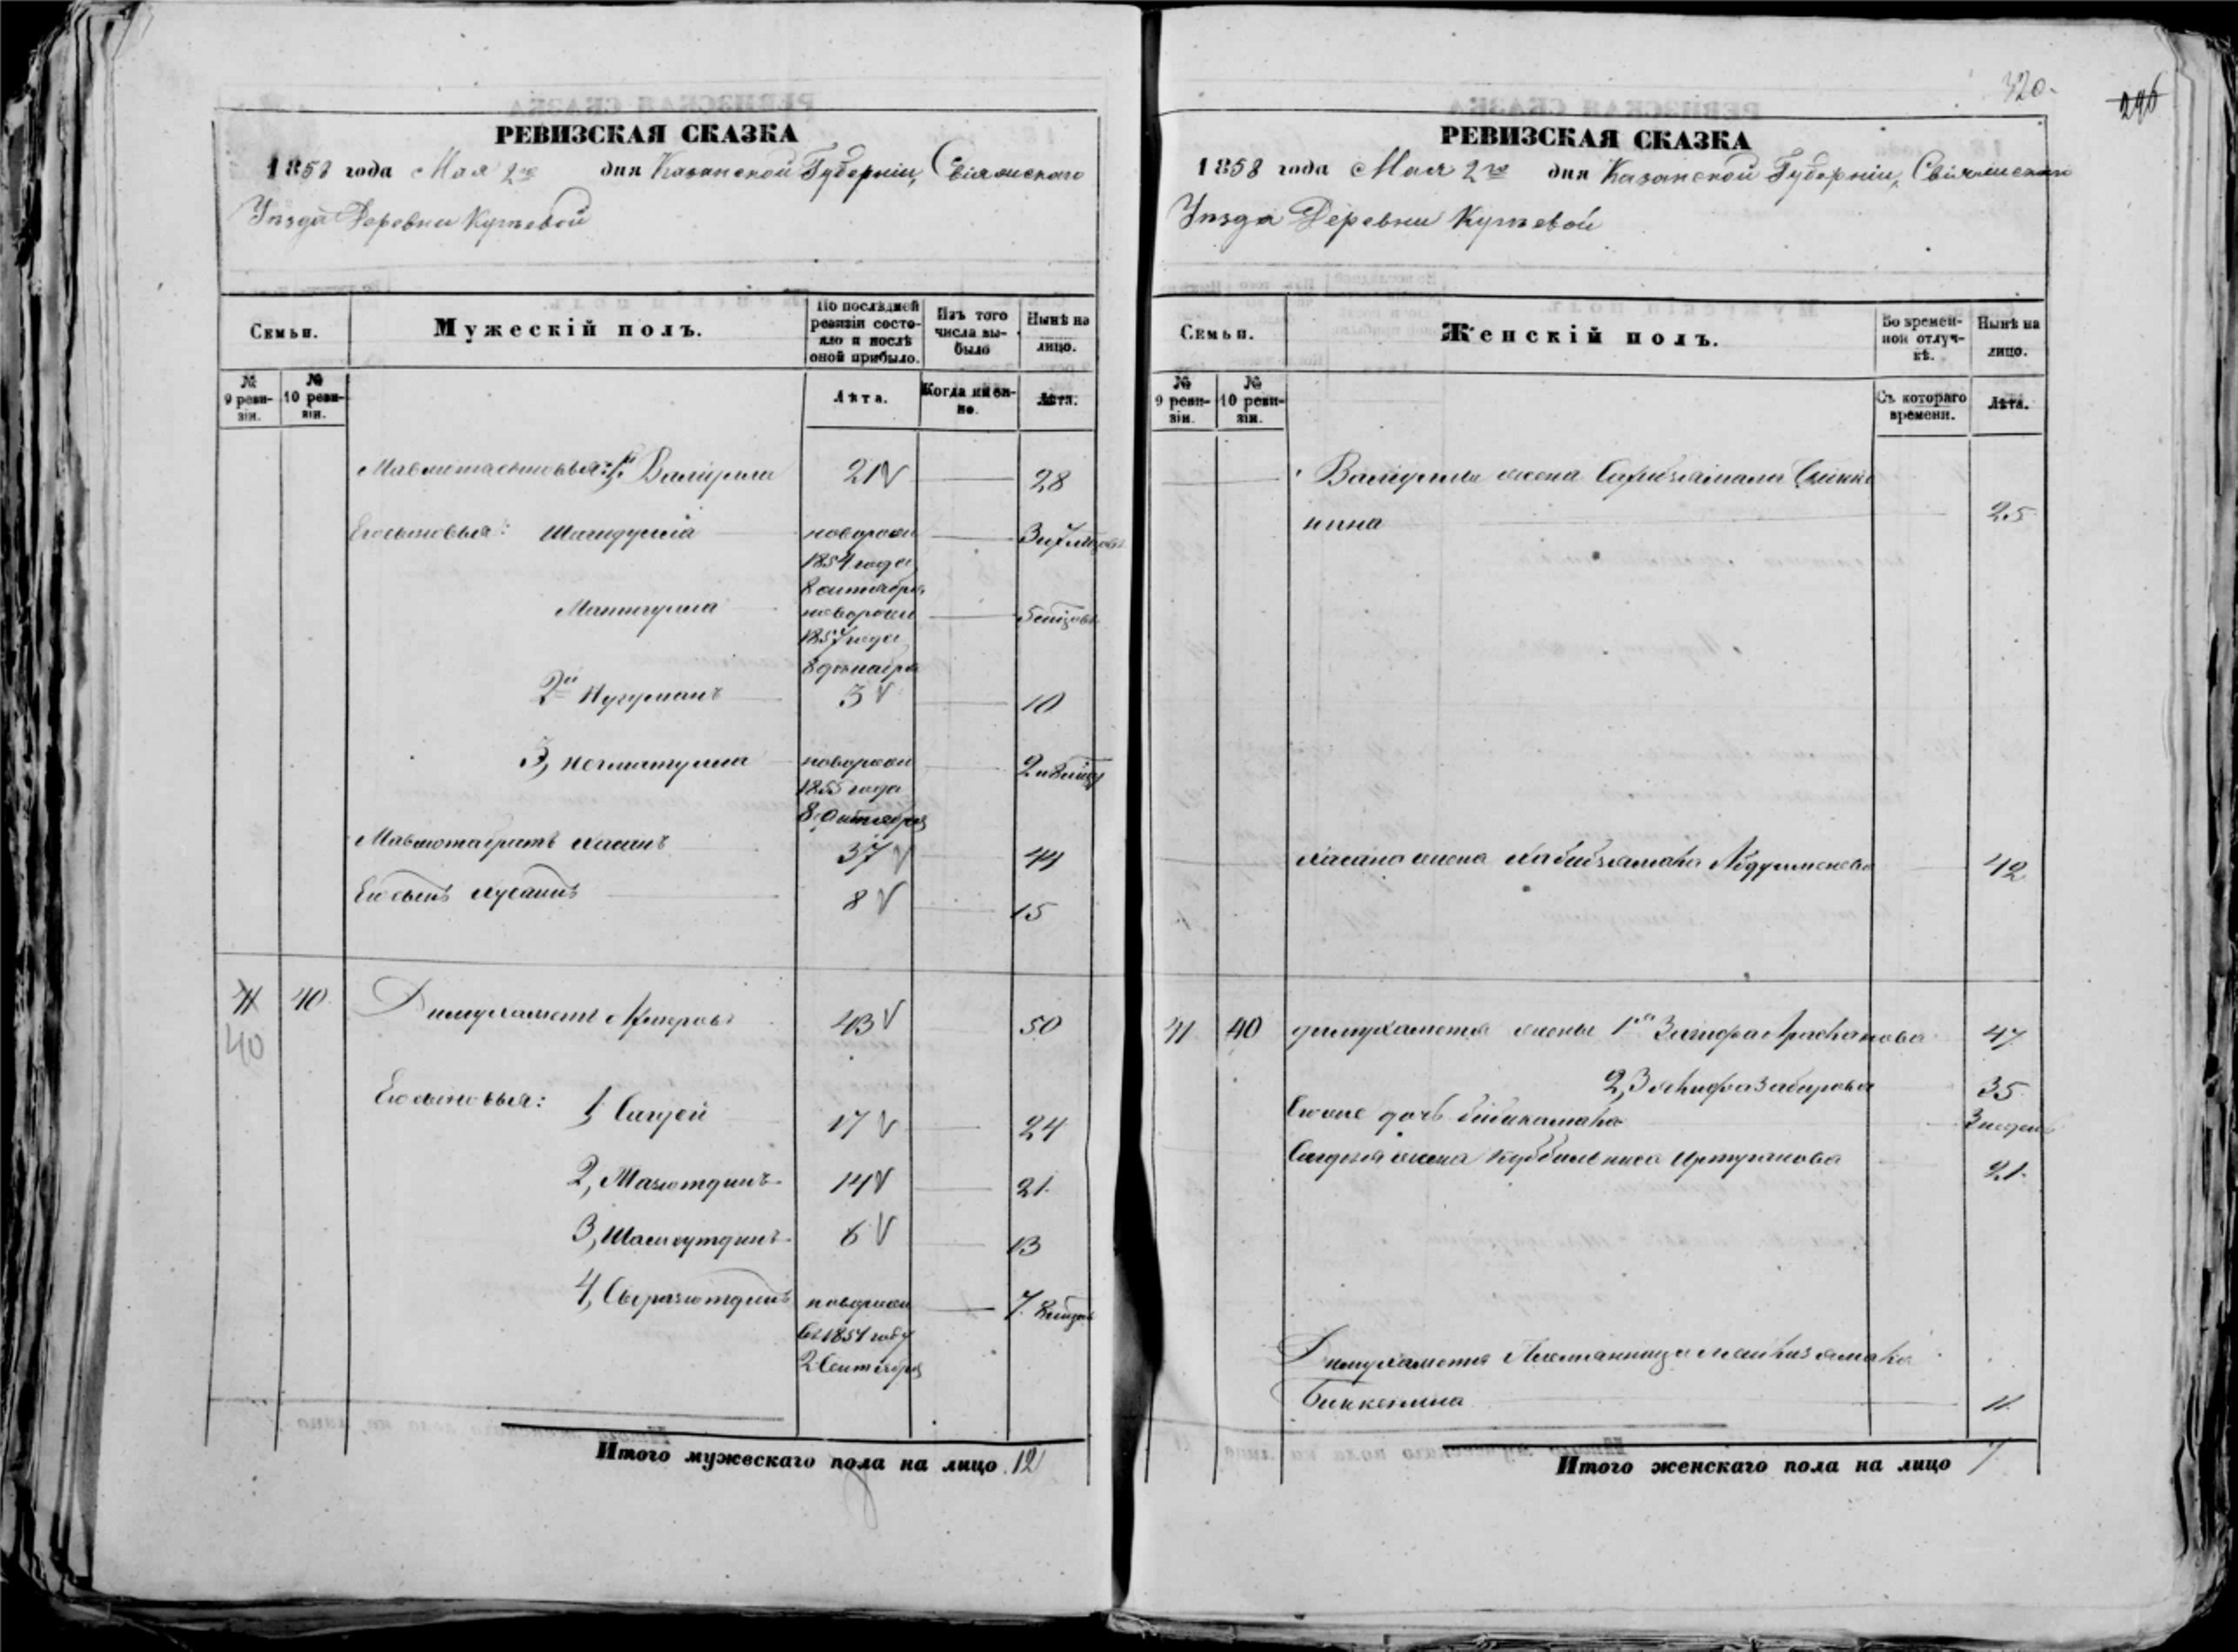 320.
296
РЕВИЗСКАЯ СКАЗКА
1858 года Мая 2го дня Казанской Губерніи, Свіяжскаго
Уезда Деревни Кугѣевой
Семьи.
Мужескій полъ.
По послѣдней ревизіи состояло и послѣ оной прибыло.
Изъ того числа выбыло
Нынѣ на лицо.
№ 9 ревизіи.
№ 10 ревизіи.
Лѣта.
Когда именно.
Лѣта.
1й Валіулла 21 28
Его сыновья: новорож 3 и 7 мѣсяцовъ
1854 года
8 октября
новорож 5 мѣсяцовъ
1857 года
8 декабря
2й Нугуманъ 3 10
3, Негматулла новорож 2 и
1855 года
8 Октября
братъ Хасанъ 37 44
Его сынъ Хусаинъ 8 15
41 40 Димухаметъ 43 50
40
Его сыновья: 1, Сагдей 17 24
2, Мазютдинъ 14 21.
3, Шамсутдинъ 6 13
4, новорож 7.
въ 1854 году
2 Сентября
Итого мужескаго пола на лицо 12
РЕВИЗСКАЯ СКАЗКА
1858 года Мая 2го дня Казанской Губерніи, Свіяжскаго
Уезда Деревни Кугѣевой
Семьи.
Женскій полъ.
Во временной отлучкѣ.
Нынѣ на лицо.
№ 9 ревизіи.
№ 10 ревизіи.
Съ котораго времени.
Лѣта.
Валіуллы жена
нина 25
Хасана жена 42
41 40 Димухаметя жены 1я 47
2, Забирова 35
дочь 3 недели
Сагдея жена 21.
Димухаметя Племянница
Биккенина 11
Итого женскаго пола на лицо 7